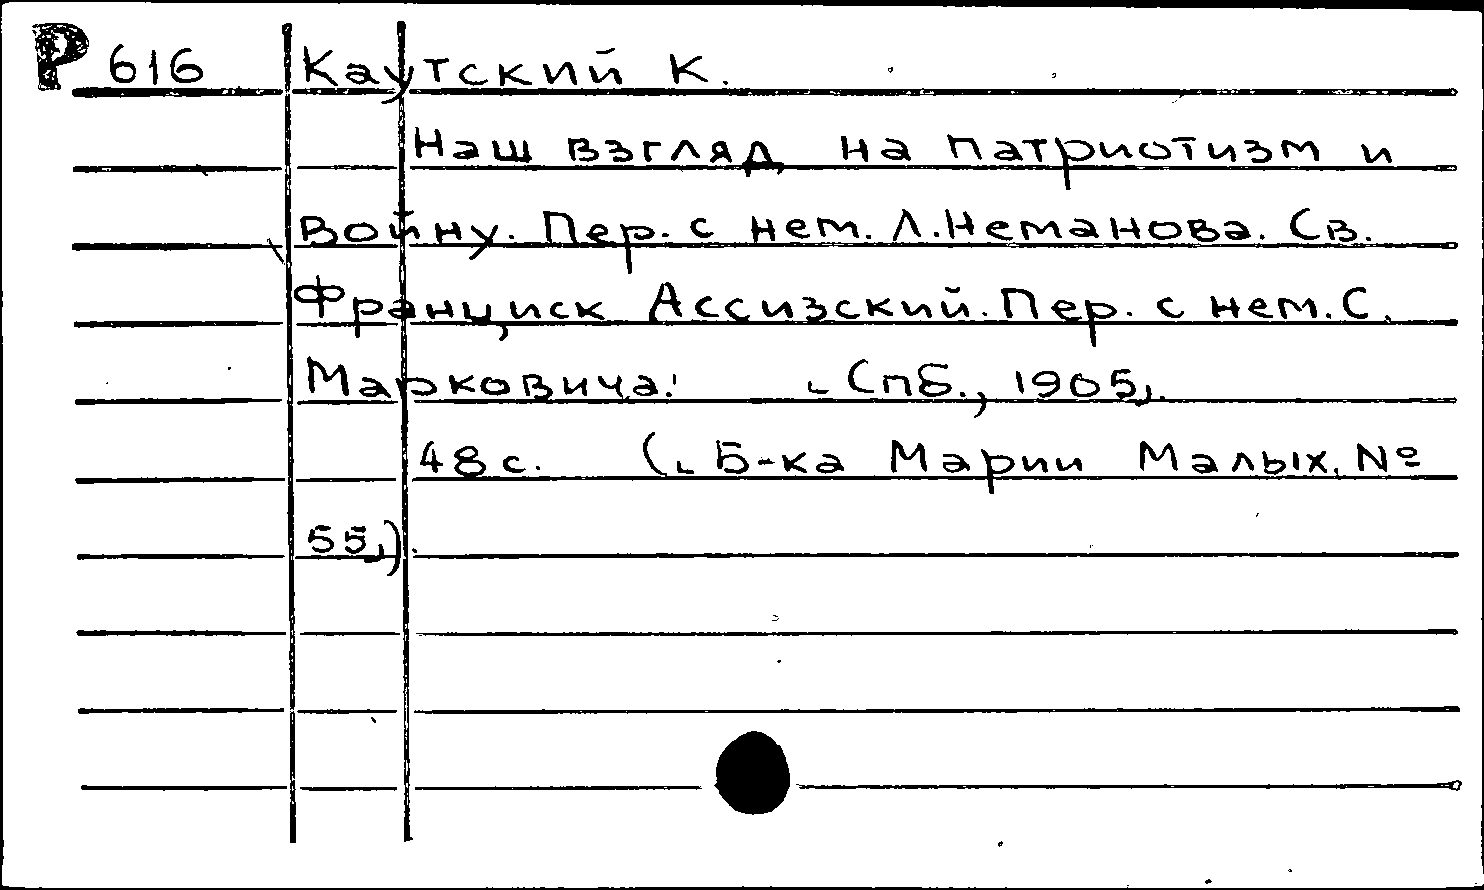 Р 616 Каутский К.
Наш взгляд на патриотизм и
войну. Пер. с нем. Л.Неманова. Св.
Франциск Ассизский. Пер. с нем. С.
Марковича. [Спб., 1905].
48 с. ([Б-ка Марии Малых. №
55]).